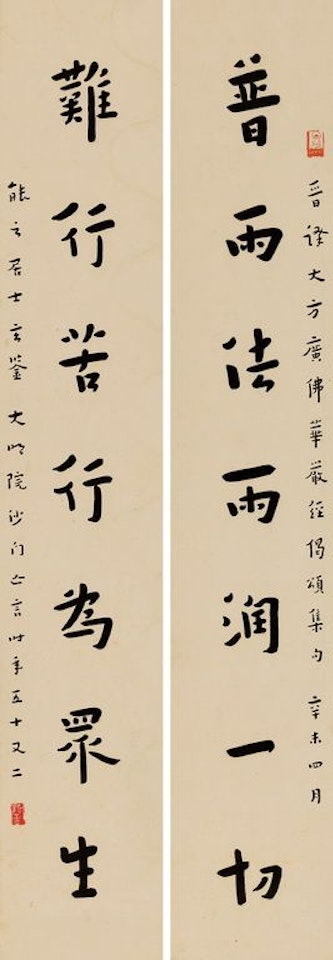 晉譯大方廣佛華嚴經偈頌集句 辛未四月
普雨法雨润一切
難行苦行為眾生
能居士玄鑒 大明院沙门亡言時年五十又二